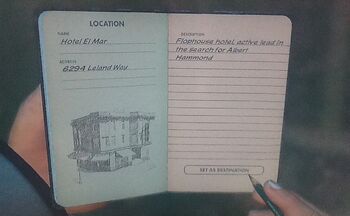 LOCATION
NAME
Hotel El Mar
ADDRESS
6294 Leland Way
DESCRIPTION
Flophouse hotel, active lead in
the search for Albert
Hammond
SET AS DESTINATION